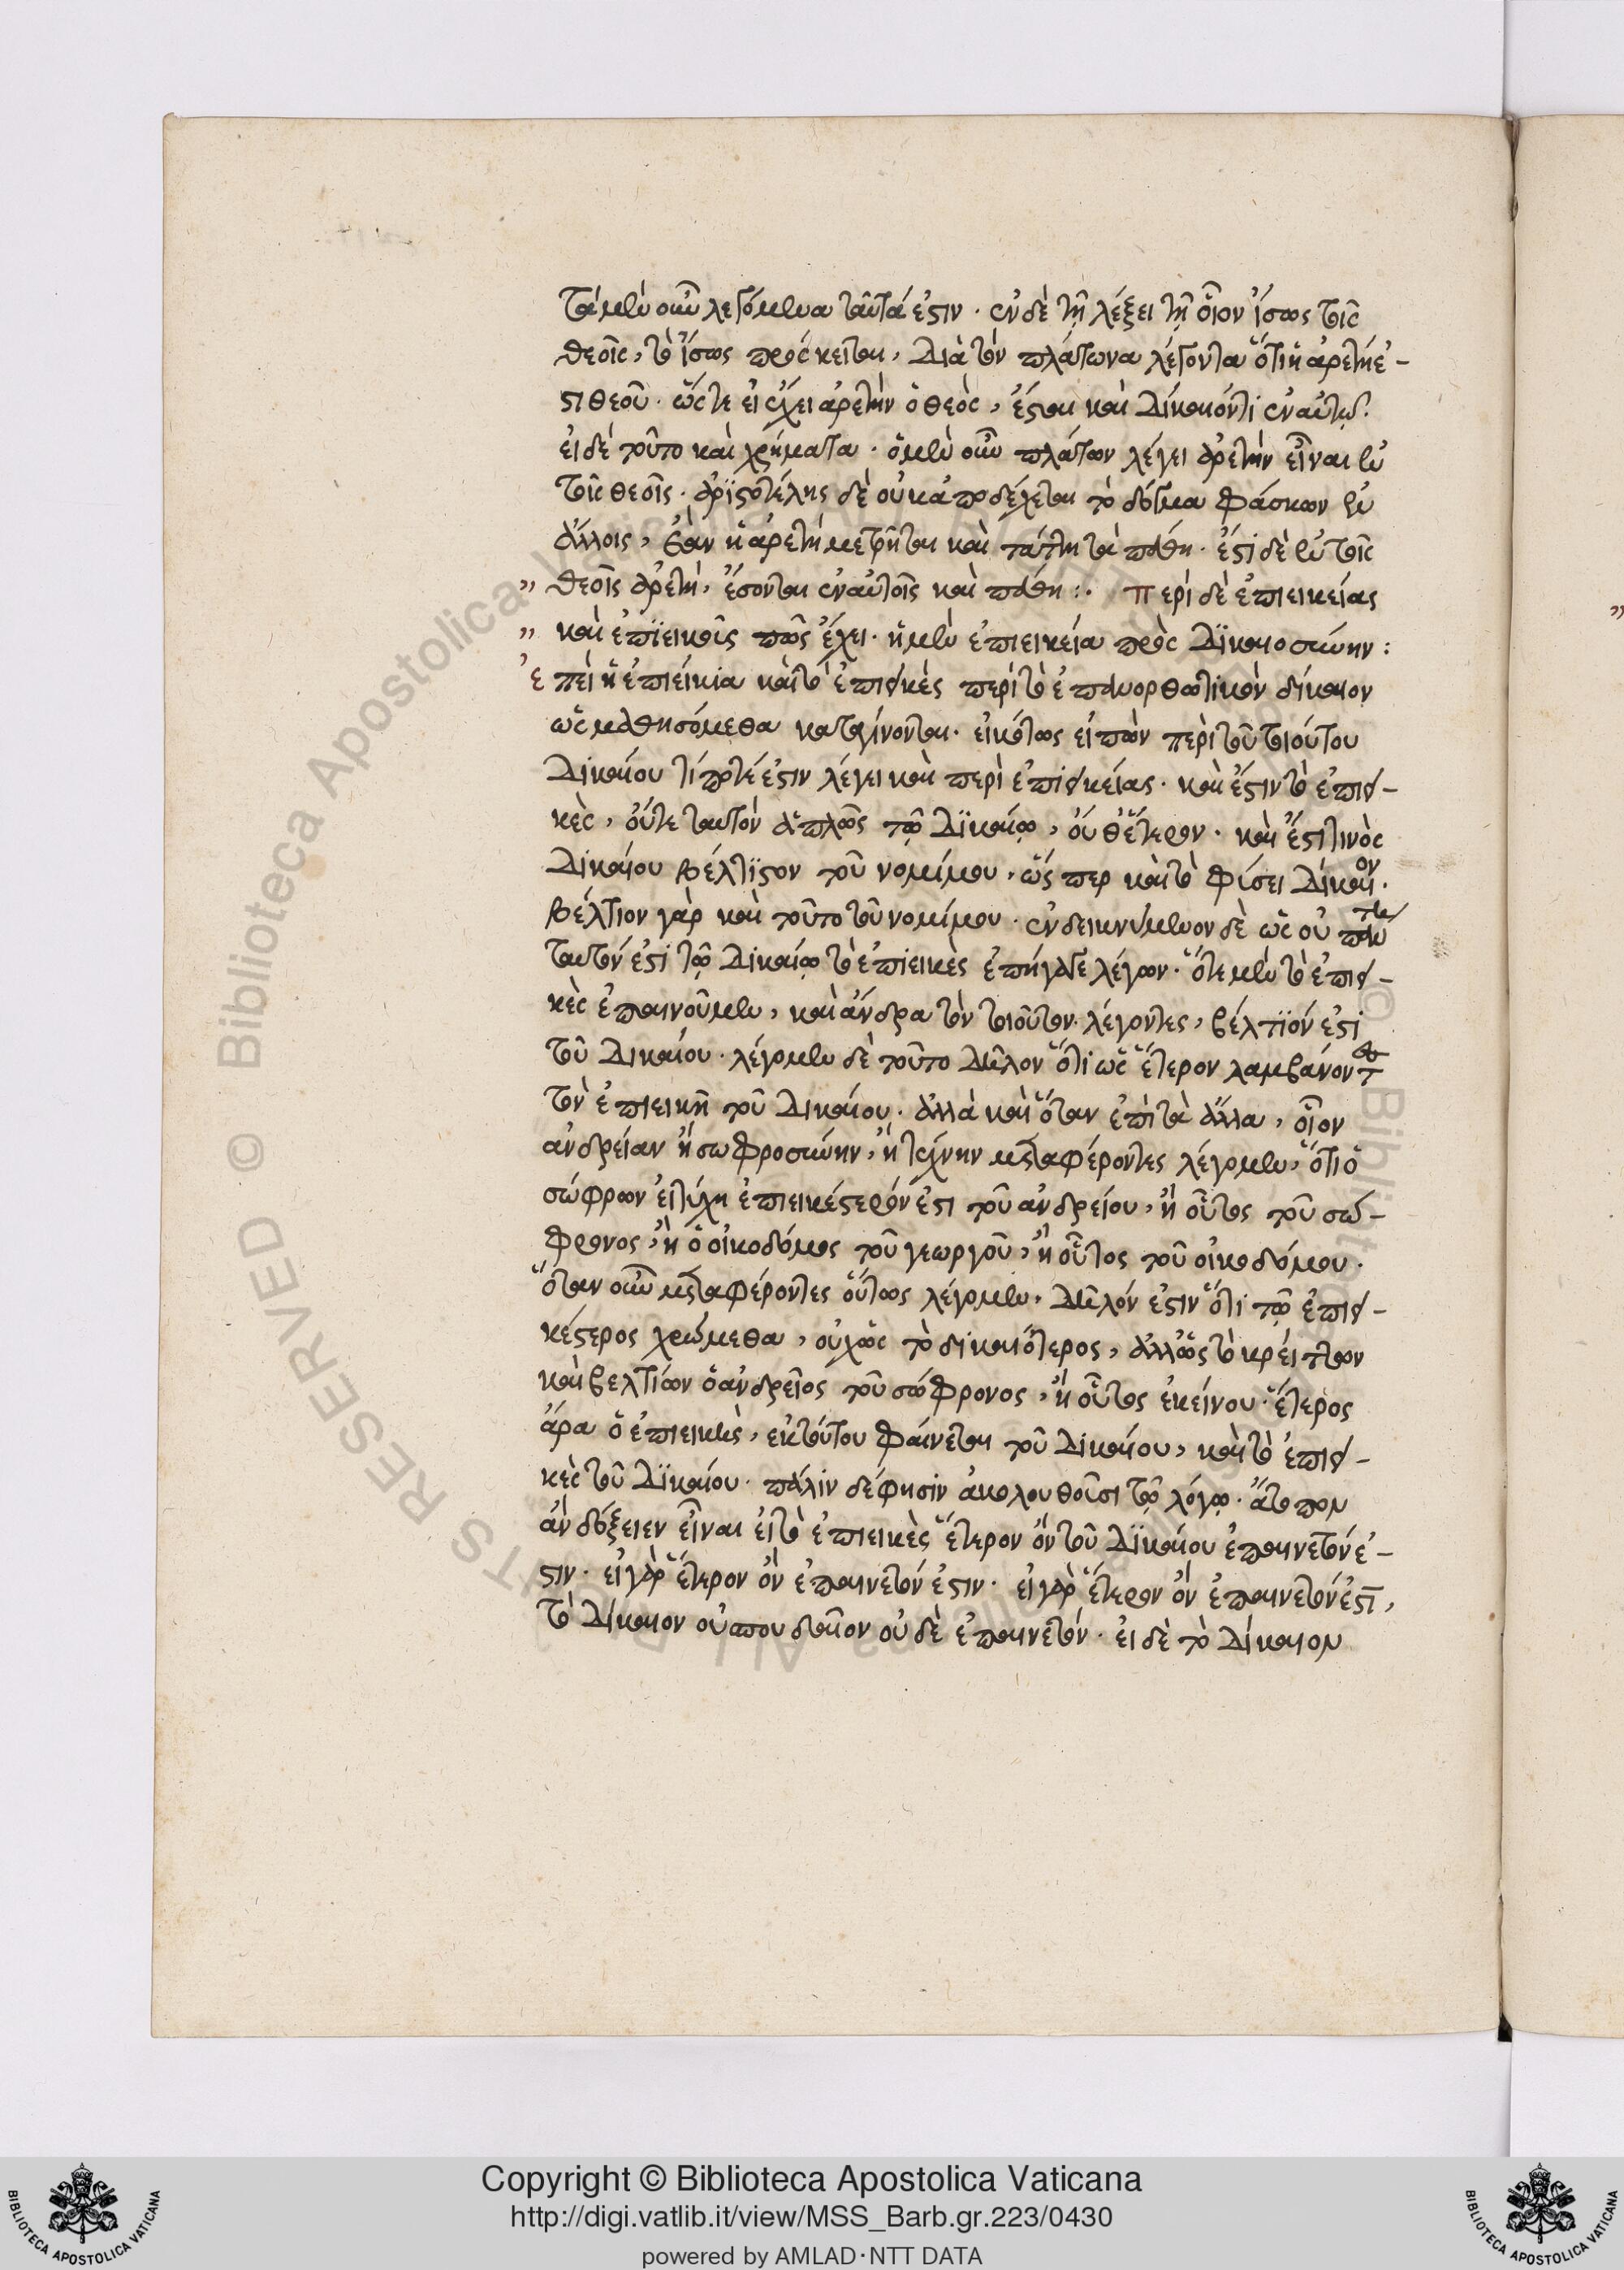 τὰ μὲν οὖν λεγόμενα ταῦτά ἐστιν· ἐν δὲ τῇ λέξει τῇ οἷον ἴσως τοῖς
θεοῖς, τὸ ἴσως πρόσκειται, διὰ τὸν πλάτωνα λέγοντα ὅτι ἡ ἀρετή ἐ-
στι θεοῦ· ὥστε εἰ ἔχει ἀρετὴν ὁ θεὸς, ἔσται καὶ δίκαιόν τι ἐν αὐτῷ·
εἰ δὲ τοῦτο καὶ χρήματα· ὁ μὲν οὖν πλάτων λέγει ἀρετὴν εἶναι ἐν
τοῖς θεοῖς· ἀρϊστοτέλης δὲ οὐκ ἀποδέχεται τὸ δόγμα φάσκων ἐν
ἄλλοις, ἐὰν ἡ ἀρετὴ μετρῆται καὶ τάττῃ τὰ πάθη· ἔστι δὲ ἐν τοῖς
„ θεοῖς ἀρετὴ, ἔσονται ἐν αὐτοῖς καὶ πάθη :· Περὶ δὲ ἐπιεικείας
„ καὶ ἐπϊεικοῦς πῶς ἔχει· ἡ μὲν ἐπιεικεία πρὸς δϊκαιοσύνην :
ἐπεὶ ἡ ἐπιείκια καὶ τὸ ἐπιεικὲς περὶ τὸ ἐπανορθωτικὸν δίκαιον
ὡς μαθησόμεθα καταγίνονται· εἰκότως εἰπὼν περὶ τοῦ τοιούτου
δικαίου τί ποτέ ἐστιν λέγει καὶ περὶ ἐπιεικείας· καὶ ἔστιν τὸ ἐπιει-
κὲς, οὔτε ταυτὸν ἁπλῶς τῷ δϊκαίῳ, οὔθ' ἕτερον· καὶ ἔστι τινὸς
δικαίου βέλτϊστον τοῦ νομίμου, ὥσπερ καὶ τὸ φύσει δίκαιον·
βέλτιον γὰρ καὶ τοῦτο τοῦ νομίμου· ἐνδεικνύμενον δὲ ὡς οὐ πάντη
ταυτόν ἐστι τῷ δικαίῳ τὸ ἐπιεικὲς ἐπήγαγε λέγων· ὅτε μὲν τὸ ἐπιει-
κὲς ἐπαινοῦμεν, καὶ ἄνδρα τὸν τοιοῦτον· λέγοντες, βέλτϊόν ἐστι
τοῦ δικαίου· λέγομεν δὲ τοῦτο δῆλον ὅτι ὡς ἕτερον λαμβάνοντες
τὸν ἐπιεικῆ τοῦ δικαίου· ἀλλὰ καὶ ὅταν ἐπὶ τὰ ἄλλα, οἷον
ἀνδρείαν ἢ σωφροσύνην, ἢ τέχνην μεταφέροντες λέγομεν, ὅτι ὁ
σώφρων εἰ τύχη ἐπιεικέστερόν ἐστι τοῦ ἀνδρείου, ἢ οὗτος τοῦ σώ-
φρονος, ἢ ὁ οἰκοδόμος τοῦ γεωργοῦ, ἢ οὗτος τοῦ οἰκοδόμου·
ὅταν οὖν μεταφέροντες οὕτως λέγομεν, δῆλόν ἐστιν ὅτι τῷ ἐπιει-
κέστερος χρώμεθα, οὐχ ὡς τὸ δικαιότερος, ἀλλ' ὡς τὸ κρείττων
καὶ βελτίων ὁ ἀνδρεῖος τοῦ σώφρονος, ἢ οὗτος ἐκείνου· ἕτερος
ἄρα ὁ ἐπιεικὴς, ἐκ τούτου φαίνεται τοῦ δικαίου, καὶ τὸ ἐπιει-
κὲς τοῦ δϊκαίου· πάλιν δέ φησιν ἀκολουθοῦσι τῷ λόγῳ· ἄτοπον
ἂν δόξειεν εἶναι εἰ τὸ ἐπιεικὲς ἕτερον ὂν τοῦ δϊκαίου ἐπαινετόν ἐ-
στιν· εἰ γὰρ ἕτερον ὂν ἐπαινετόν ἐστιν· εἰ γὰρ ἕτερον ὂν ἐπαινετόν ἐστι,
τὸ δίκαιον οὐ σπουδαῖον οὐδὲ ἐπαινετόν· εἰ δὲ τὸ δίκαιον
Copyright © Biblioteca Apostolica Vaticana
http://digi.vatlib.it/view/MSS_Barb.gr.223/0430
powered by AMLAD·NTT DATA